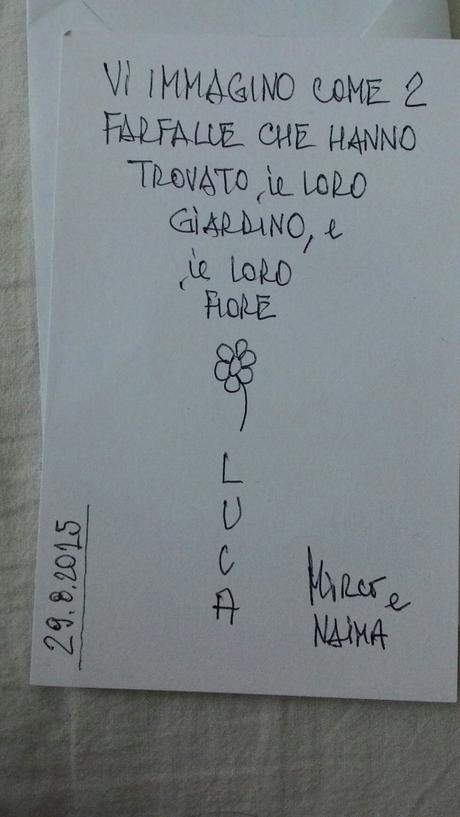 Vi IMMAGINO COME 2
FARFALLE CHE HANNO
TROVATO, il LORO
GiARDINO, e
il LORO
FIORE
L
U
C
A
29.8.2015
Mirco e
NAIMA